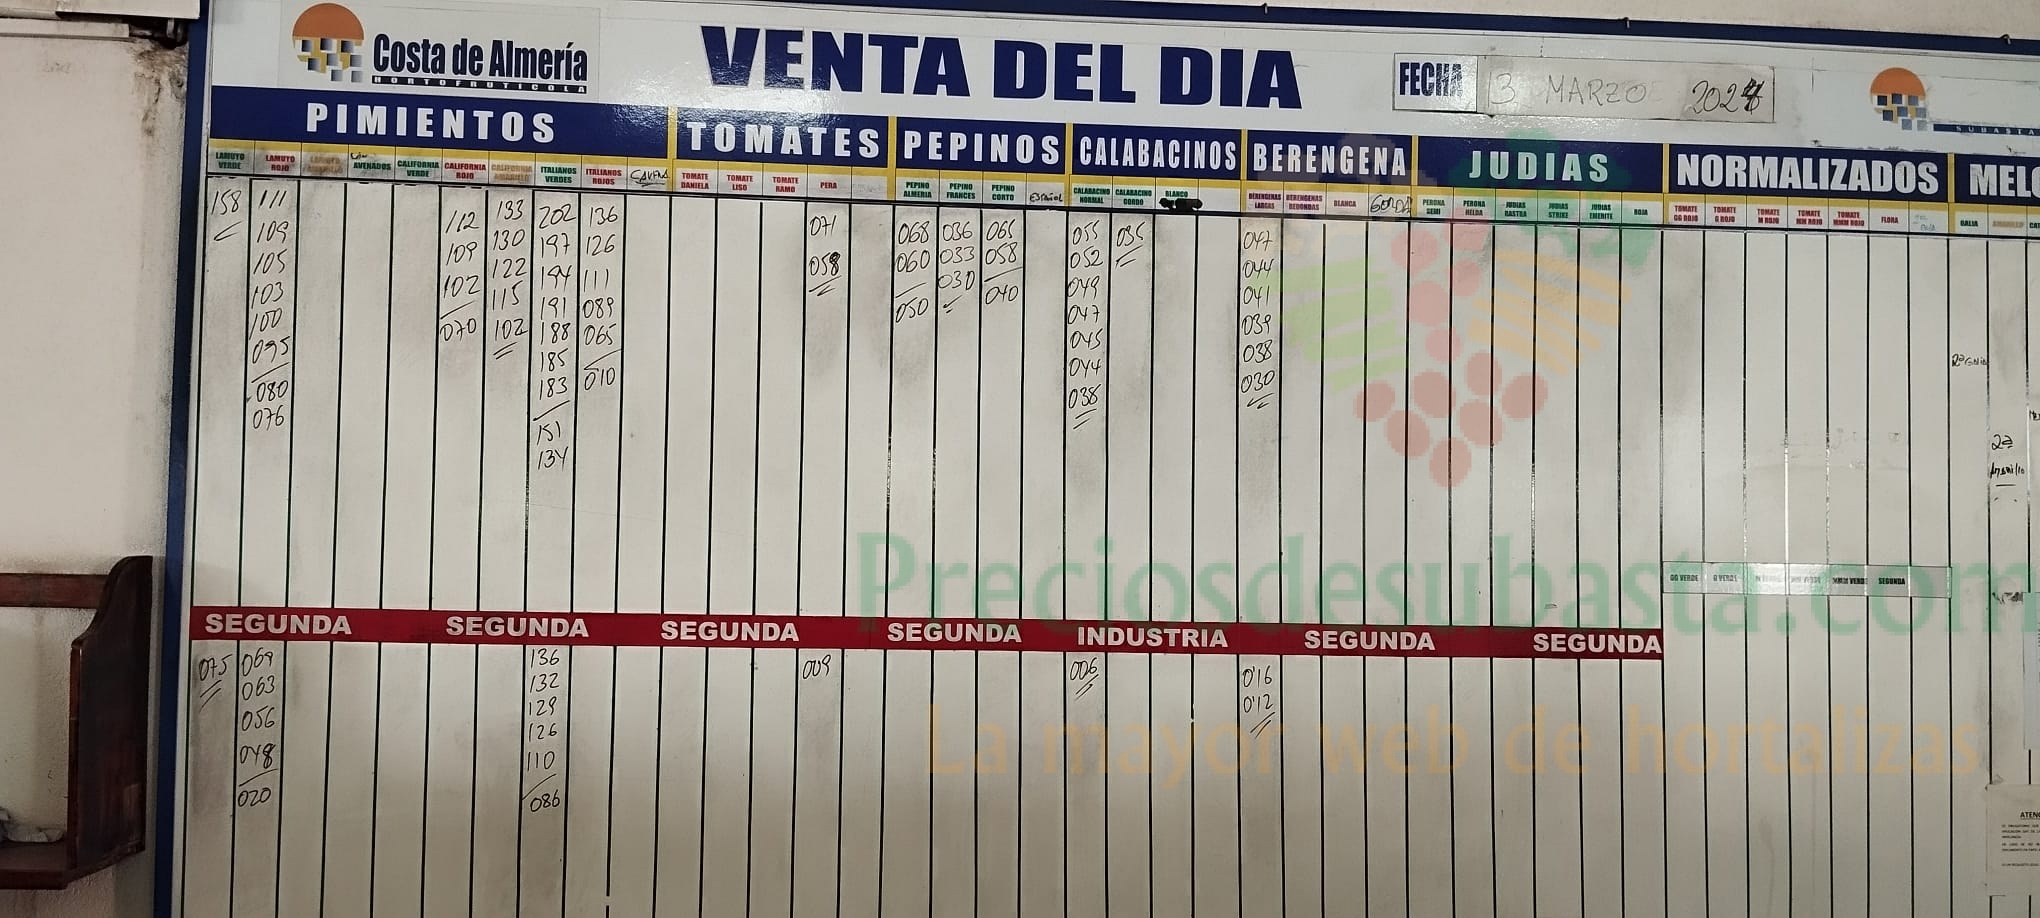 Costa de Almería
HORTOFRUTICOLA
VENTA DEL DIA
FECHA 3 MARZO 2024
SUBASTA
PIMIENTOS TOMATES PEPINOS CALABACINOS BERENGENA JUDIAS NORMALIZADOS MELO
LAMUYO VERDE LAMUYO ROJO LAMUYO AMARILLO AVENADOS CALIFORNIA VERDE CALIFORNIA ROJO CALIFORNIA AMARILLO ITALIANOS VERDES ITALIANOS ROJOS TOMATE DANIELA TOMATE LISO TOMATE RAMO PERA PEPINO ALMERIA PEPINO FRANCES PEPINO CORTO ESPAÑOL CALABACINO NORMAL CALABACINO GORDO BLANCO BERENGENAS LARGAS BERENGENAS REDONDAS BLANCA GORDA PERONA SEMI PERONA HELDA JUDIAS RASTRA JUDIAS STRIKE JUDIAS EMERITE ROJA TOMATE GG ROJO TOMATE G ROJO TOMATE M ROJO TOMATE MM ROJO TOMATE MMM ROJO FLORA GALIA AMARILLO
158 111 112 133 202 136 071 068 036 065 055 035 047
109 109 130 197 126 058 060 033 058 052 044
105 102 122 194 111 050 030 040 049 041
103 070 115 191 089 047 039
100 102 188 065 045 038
095 185 010 044 030
080 183 038
076 151
134
2ª Galia
2ª
Amarillo
Preciosdesubasta.com
GG VERDE G VERDE M VERDE MM VERDE MMM VERDE SEGUNDA
SEGUNDA SEGUNDA SEGUNDA SEGUNDA INDUSTRIA SEGUNDA SEGUNDA
075 069 136 009 006 0'16
063 132 0'12
056 129
048 126
020 110
086
La mayor web de hortalizas